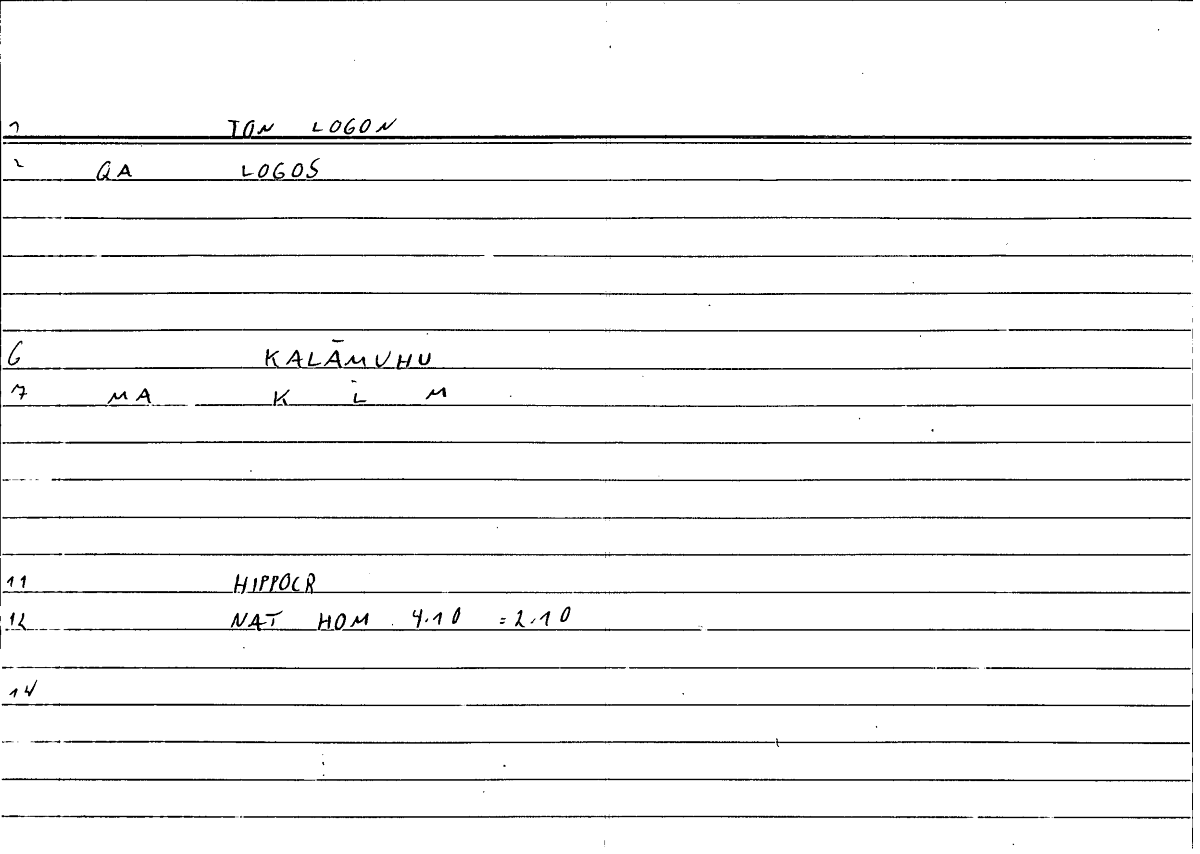 1 TON LOGON
2 QA LOGOS
6 KALĀMUHU
7 MA K L M
11 HIPPOCR
12 NAT HOM 4.10 =2.10
14